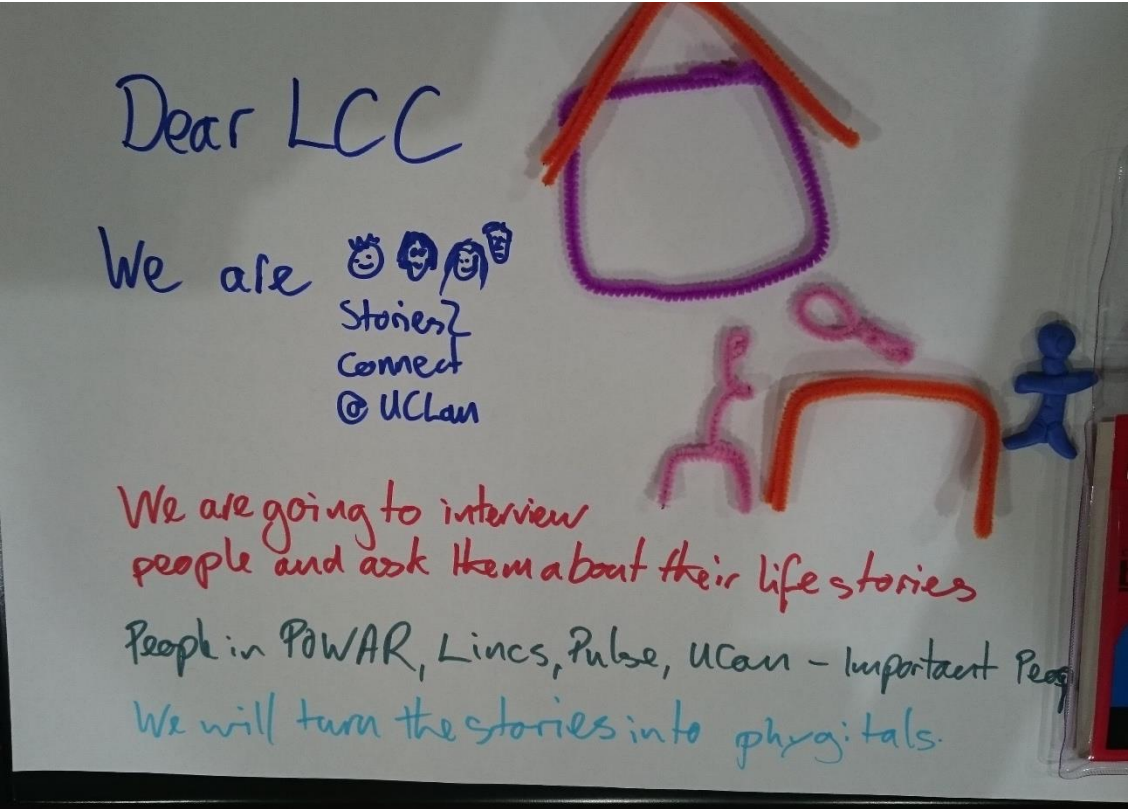 Dear LCC
We are
Stories2
Connect
@ UCLan
We are going to interview
people and ask them about their life stories
People in POWAR, Lincs, Pulse, UCan - Important Peop
We will turn the stories into phygitals.